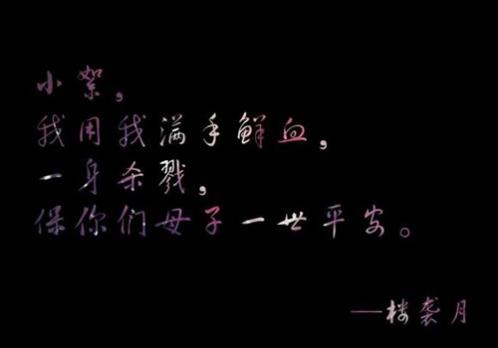 小絮，
我用我满手鲜血，
一身杀戮，
保你们母子一世平安。
—楼袭月